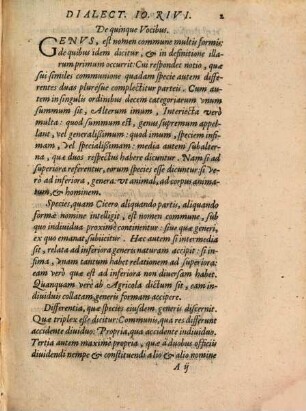 DIALECT. IO. RIVI. 2
De quinque Vocibus.
GENVS, est nomen commune multis formis:
de quibus idem dicitur, & in definitione illa-
rum primum occurrit: Cui respondet notio, quæ
sui similes communione quadam, specie autem diffe-
rentes duas pluresue complectitur parteis. Cum au-
tem in singulis ordinibus decem categoriarum vnum
summum sit, Alterum imum, Interiecta verò
multa: quod summum est, genus supremum appel-
lant, vel generalissimum: quod imum, speciem infi-
mam, vel specialissimam: media autem subalter-
na, quæ duos respectus habere dicuntur. Nam si ad
superiora referentur, eorum species esse dicuntur: si ve-
rò ad inferiora, genera: vt animal, ad corpus anima-
tum, & hominem.
Species, quam Cicero aliquando partis, aliquando
formæ nomine intelligit, est nomen commune, sub
quo indiuidua proximè continentur: siue quæ gene-
ri, ex quo emanat, subiicitur. Hæc autem si intermedia
sit, relata ad inferiora generis naturam accipit: si in-
fima, vnam tantum habet relationem ad superiora:
eam verò quæ est ad inferiora non diuersam habet.
Quanquam verè ab Agricola dictum sit, eam in-
diuiduis collatam, generis formam accipere.
Differentia, quæ species eiusdem generis discernit.
Quæ triplex esse dicitur: Communis, qua res differunt
accidente diuiduo: Propria, qua accidente indiuiduo.
Tertia autem maximè propria, quæ à duobus officiis
diuidendi nempe & constituendi alio & alio nomine
A ij